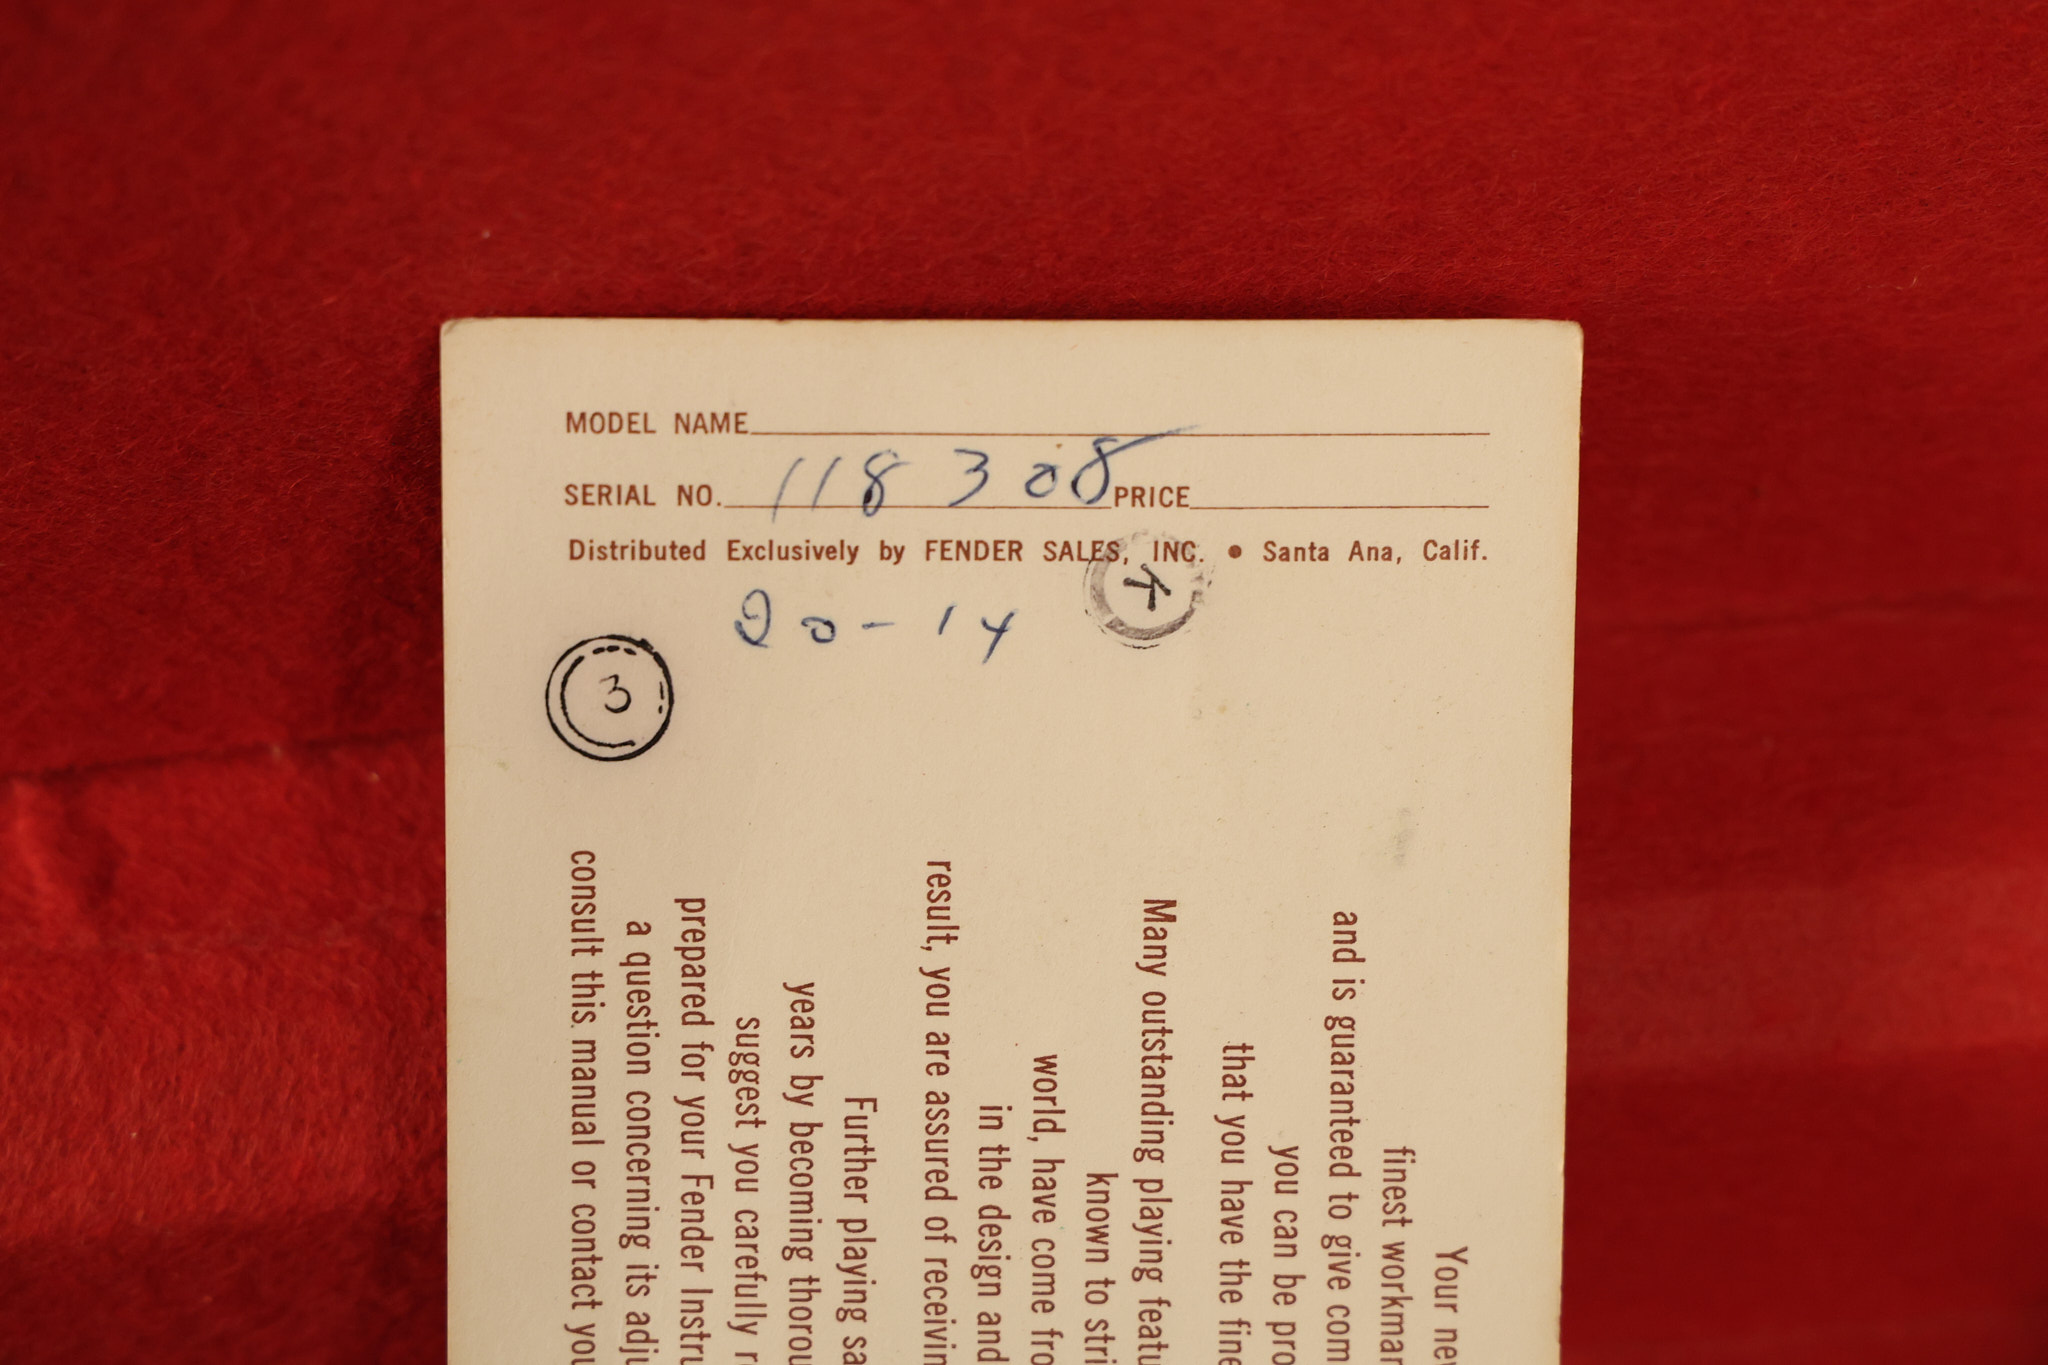 MODEL NAME
SERIAL NO. 118308 PRICE
Distributed Exclusively by FENDER SALES, INC. • Santa Ana, Calif.
20-14
3
Your new
finest workman
and is guaranteed to give com
you can be pro
that you have the fine
Many outstanding playing featu
known to stri
world, have come fro
in the design and
result, you are assured of receivin
Further playing sa
years by becoming thorou
suggest you carefully r
prepared for your Fender Instru
a question concerning its adju
consult this manual or contact you